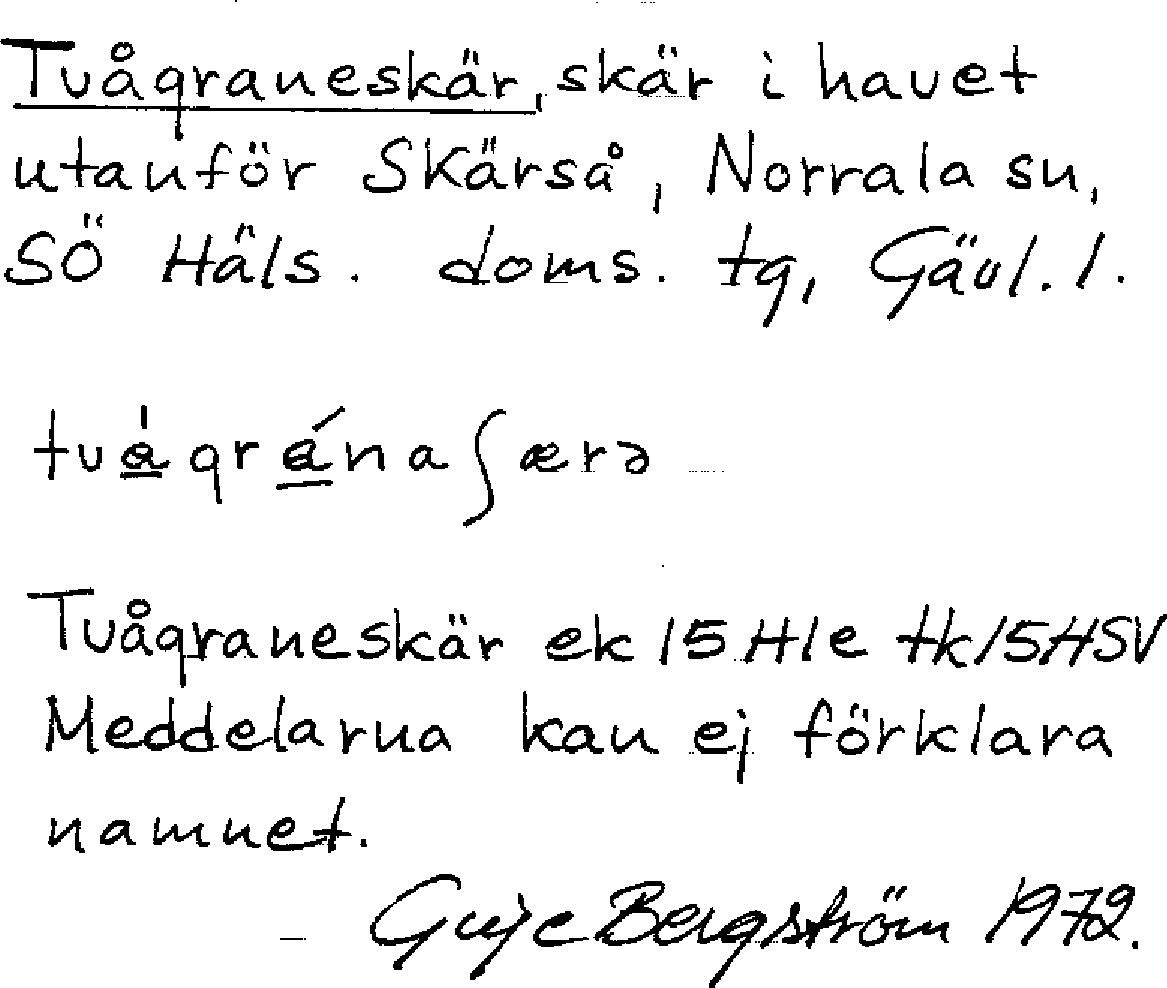 Tvågraneskär, skär i havet
utanför Skärså, Norrala sn,
SÖ Häls. doms. tg, Gävl. l.
Tvågraneskär ek 15 Hle tk 15HSV
Meddelarna kan ej förklara
namnet.
Bergström 1972.